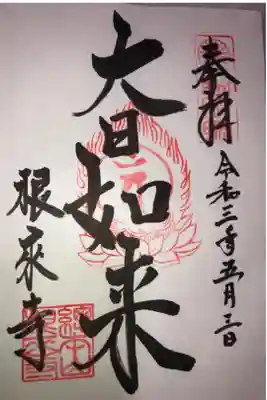 奉拝
令和三年五月三日
大日如来
根来寺